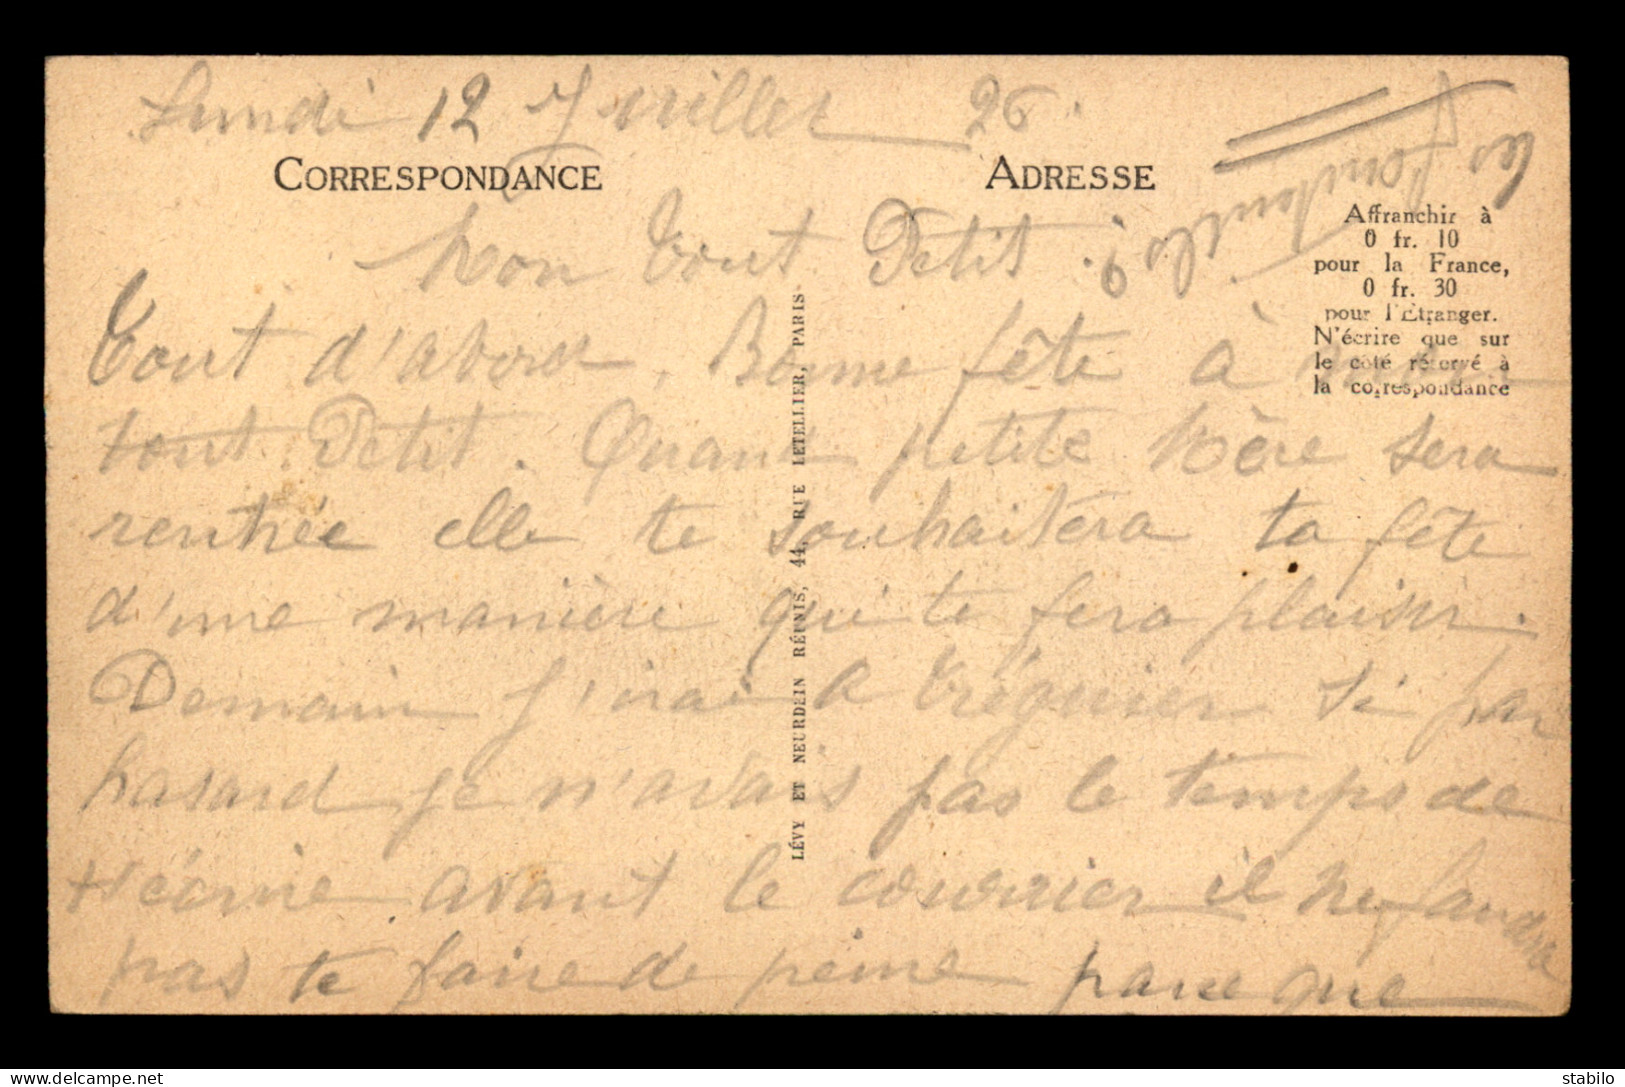 Lundi 12 Juillet 26.
CORRESPONDANCE
ADRESSE
Affranchir à
0 fr. 10
pour la France,
0 fr. 30
pour l'Étranger.
N'écrire que sur
le côté réservé à
la correspondance
LÉVY ET NEURDEIN RÉUNIS, 44, RUE LETELLIER, PARIS
Mon Tout Petit.
Tout d'abord, Bonne fête à mon
tout Petit. Quand petite Mère sera
rentrée elle te souhaitera ta fête
d'une manière qui te fera plaisir.
Demain j'irai à Tréguier si par
hasard je n'avais pas le temps de
t'écrire avant le courrier il ne faudra
pas te faire de peine parce que
les
delcampe.net
stabilo